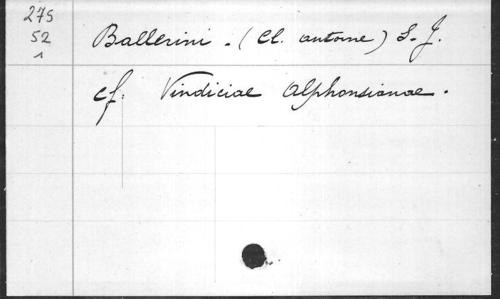 275
52
1
Ballerini. (Cl. antoine) S. J.
cf. Vindiciae Alphonsianae.